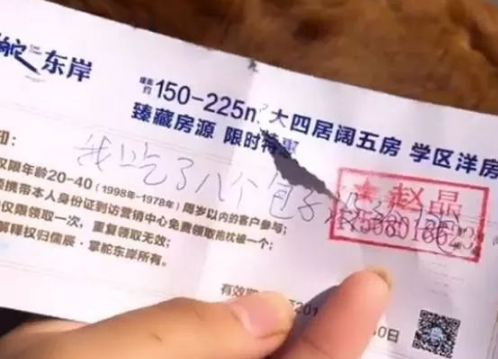 舵东岸
建面约150-225m² 大四居阔五房 学区洋房
臻藏房源 限时特惠
我吃了八个包子
赵晶
知：
仅限年龄20-40（1998年-1978年）周岁以内的客户参与；
须携带本人身份证到访营销中心免费领取抱枕一个；
仅限领取一次，重复领取无效；
解释权归儒辰·掌舵东岸所有。
有效期
201
0日